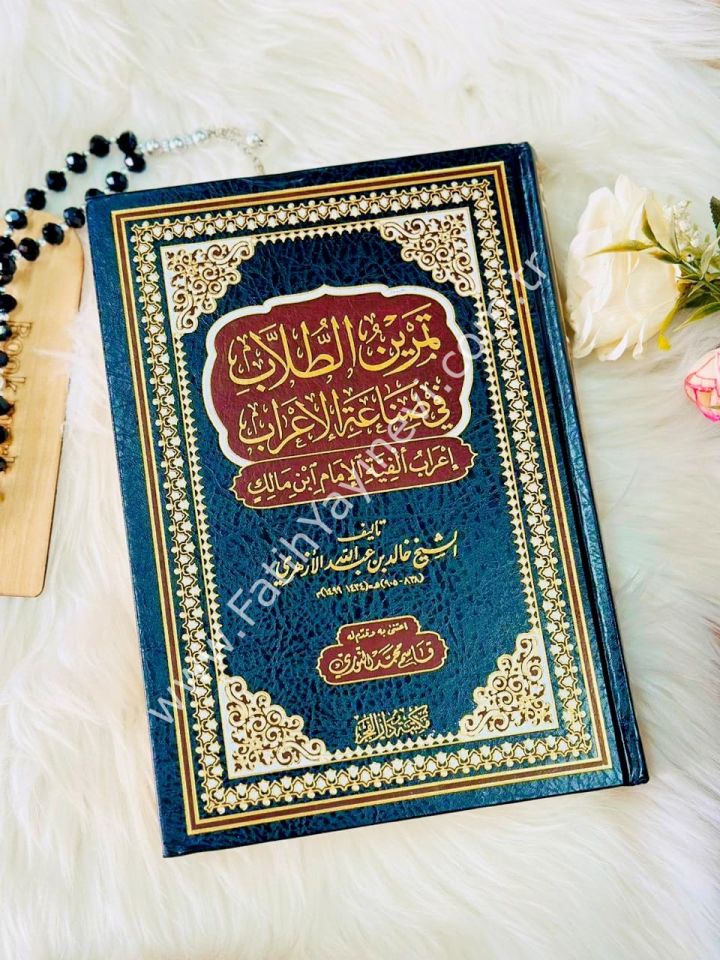 تمرين الطُّلاَّبِ
في صِنَاعَةِ الإِعْرَابِ
إِعْرَابُ أَلْفِيَّةِ الإِمَامِ ابْنِ مَالِكٍ
تأليف
الشيخ خالد بن عبد الله الأزهري
(٨٣٨ - ٩٠٥)هـ = (١٤٣٤ - ١٤٩٩)م
اعتنى به وقدم له
قاسم محمد النوري
مكتبة دار الفجر
www.FatihYayinevi.com.tr
Book